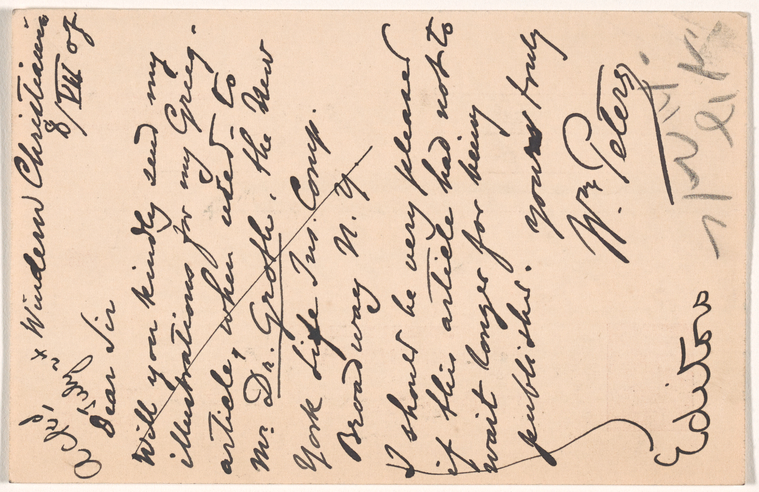 Windern Christiania
8/VIII 07
Ackd
July 24
Dear Sir
Will you kindly send my
illustrations for my Grieg-
article, when used - to
Mr. Dr. Groth, the New
York Life Ins. Comp.
Broadway N. Y.
I should be very pleased
if this article had not to
wait longer for being
published.
yours truly
Wm Peters
Editors